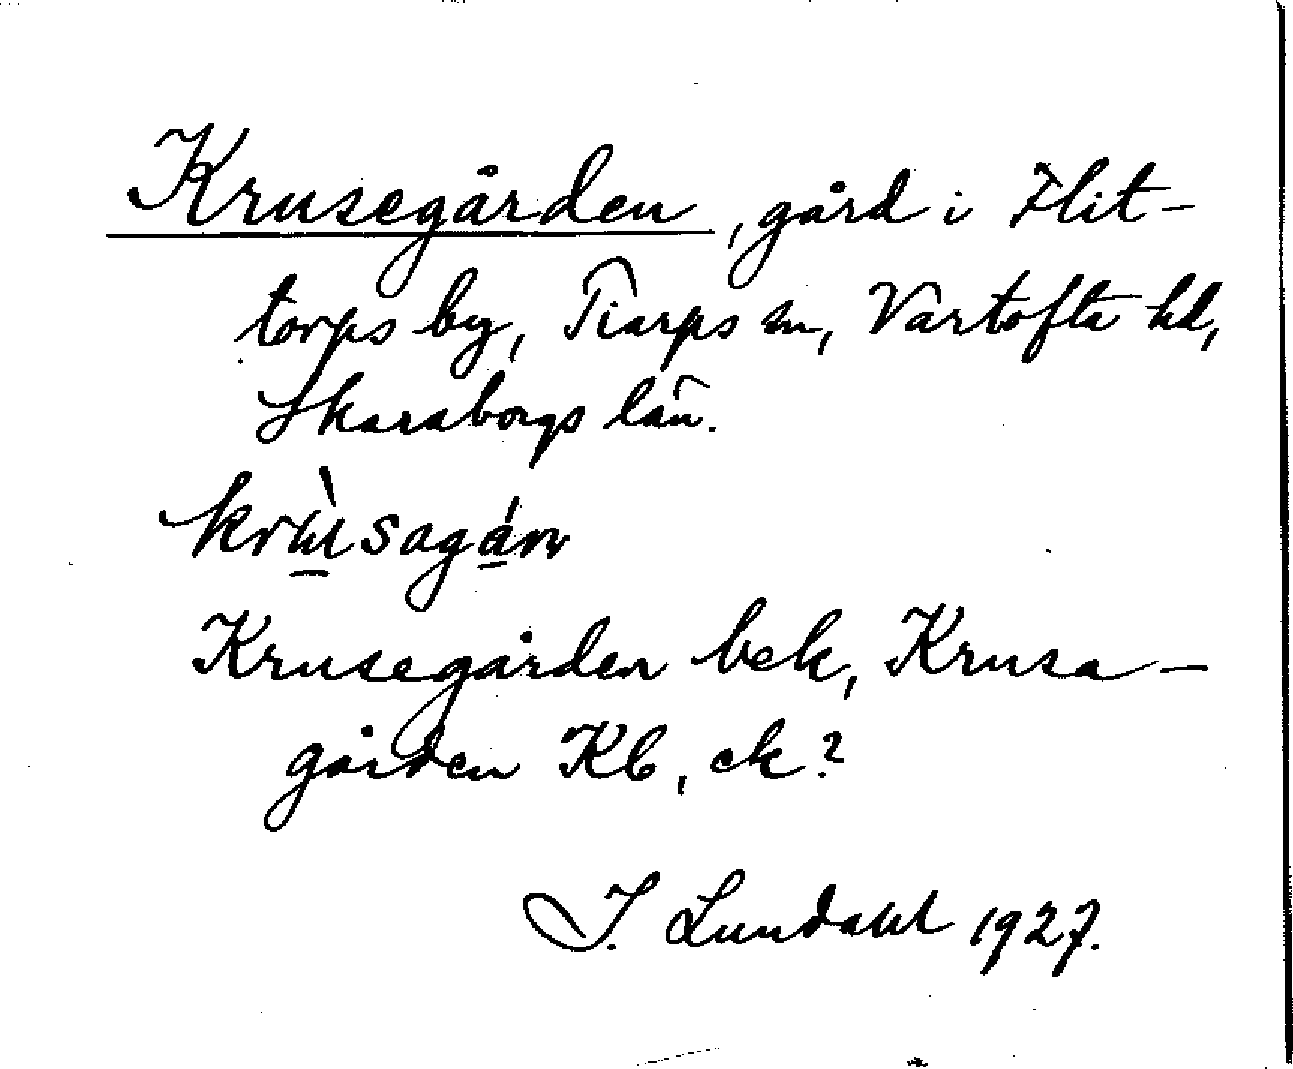 Krusegården, gård i Flit-
torps by, Tiarps sn, Vartofta hd,
Skaraborgs län.
Krusegården bek, Krusa-
gården Kb, ek?
I. Lundahl 1927.